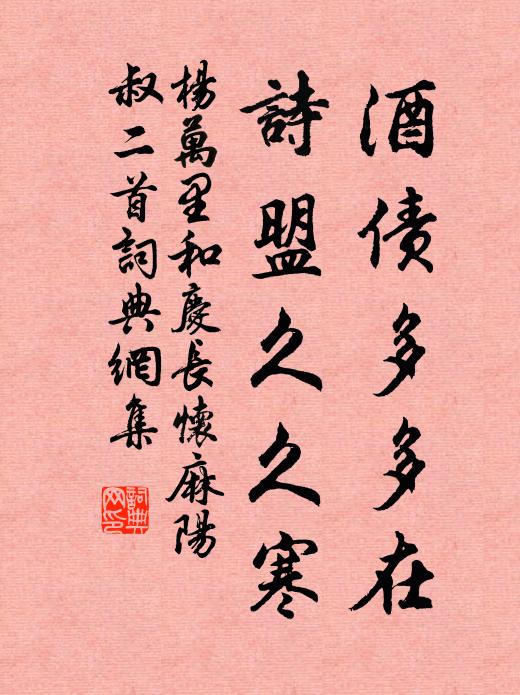 酒债多多在
詩盟久久寒
楊萬里和慶長懷麻陽
叔二首詞典網集
詞典網印